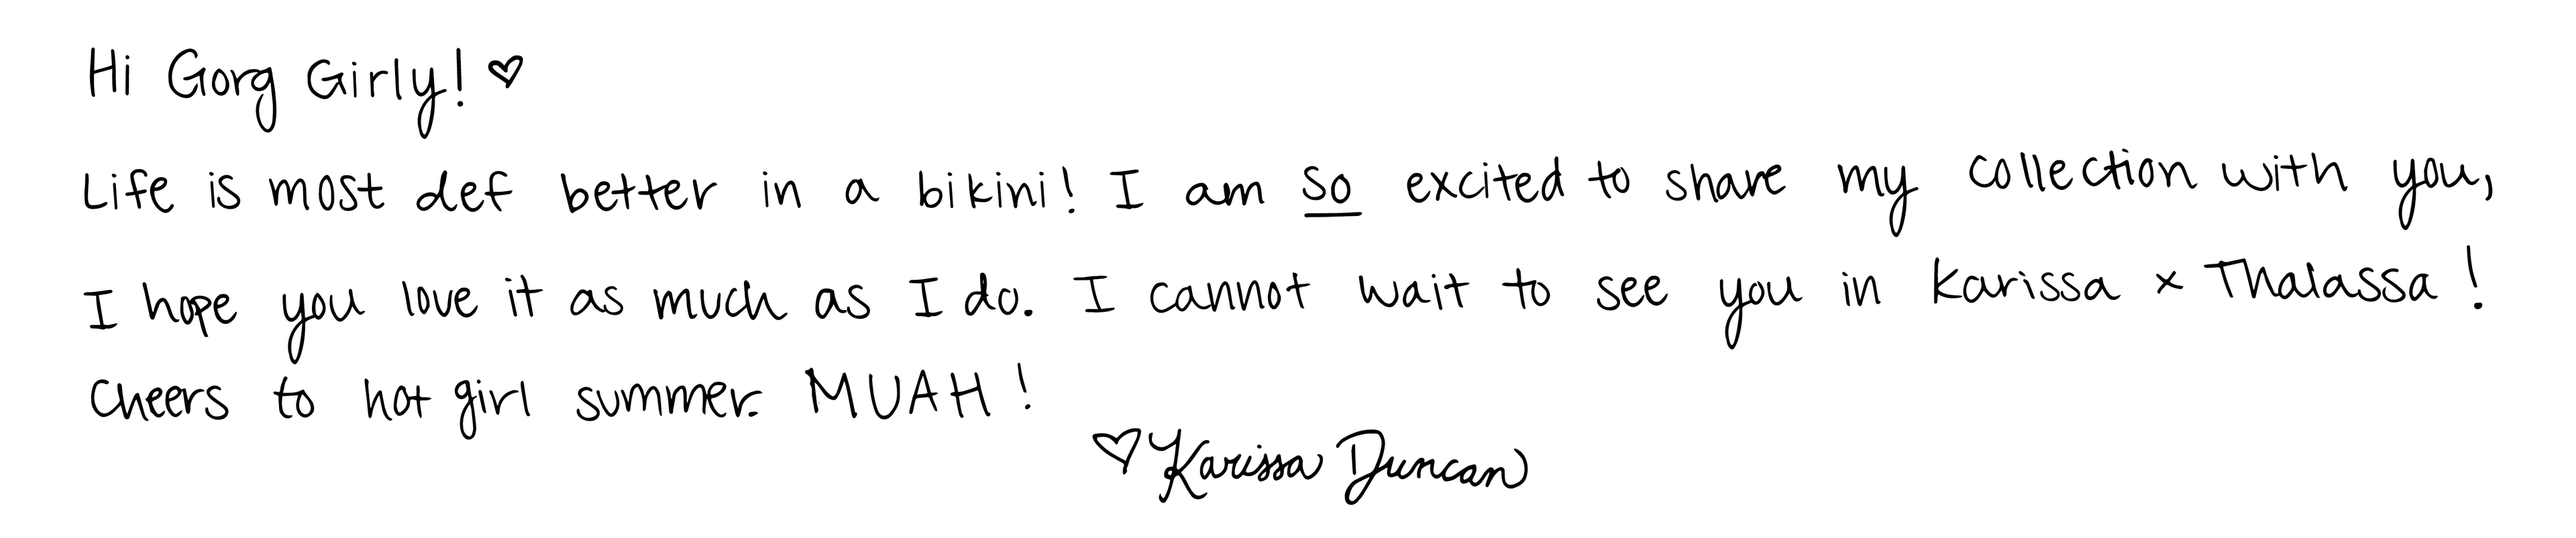 Hi Gorg Girly! ♡
Life is most def better in a bikini! I am so excited to share my collection with you,
I hope you love it as much as I do. I cannot wait to see you in Karissa x Thalassa!
Cheers to hot girl summer. MUAH!
♡ Karissa Duncan